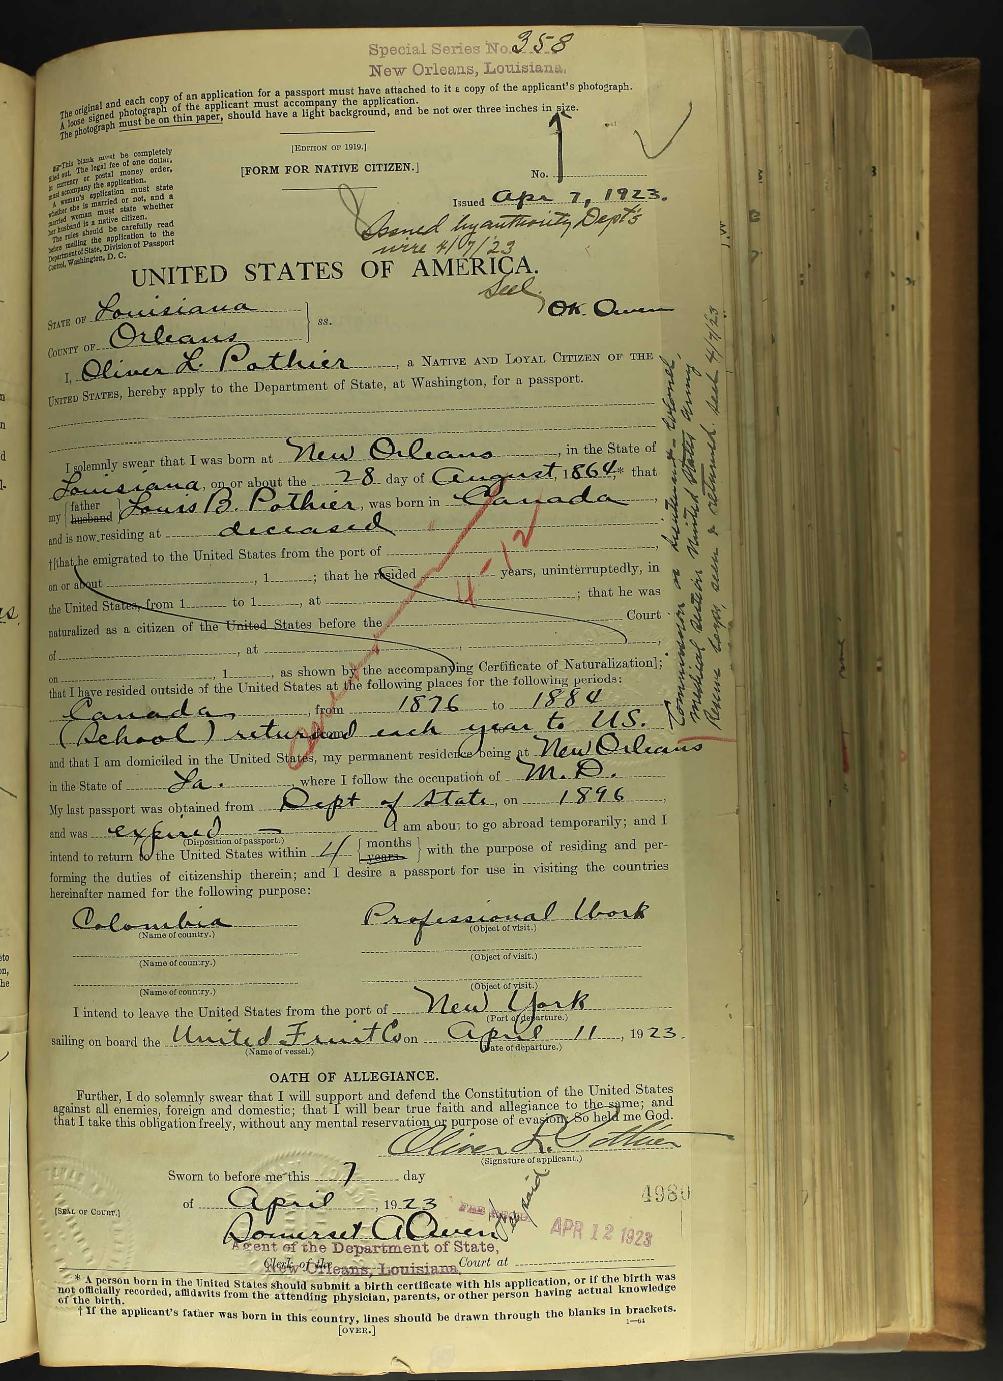 Special Series No. 358
New Orleans, Louisiana.
The original and each copy of an application for a passport must have attached to it a copy of the applicant's photograph.
A loose signed photograph of the applicant must accompany the application.
The photograph must be on thin paper, should have a light background, and be not over three inches in size.
This blank must be completely
filled out. The legal fee of one dollar,
in currency or postal money order,
must accompany the application.
A woman's application must state
whether she is married or not, and a
married woman must state whether
her husband is a native citizen.
The rules should be carefully read
before mailing the application to the
Department of State, Division of Passport
Control, Washington, D. C.
[EDITION OF 1919.]
[FORM FOR NATIVE CITIZEN.]
No.
Issued Apr 7, 1923.
Issued by authority Dept's
wire 4/7/23
UNITED STATES OF AMERICA.
Seel
OK. Owen
STATE OF Louisiana
COUNTY OF Orleans
ss.
I, Oliver L. Pothier, a NATIVE AND LOYAL CITIZEN OF THE
UNITED STATES, hereby apply to the Department of State, at Washington, for a passport.
I solemnly swear that I was born at New Orleans, in the State of
Louisiana, on or about the 28 day of August, 1864,* that
my {father husband} Louis B. Pothier, was born in Canada,
and is now residing at deceased
†[that he emigrated to the United States from the port of
on or about , 1 ; that he resided years, uninterruptedly, in
the United States, from 1 to 1 , at ; that he was
naturalized as a citizen of the United States before the Court
of , at ,
on , 1 , as shown by the accompanying Certificate of Naturalization];
that I have resided outside of the United States at the following places for the following periods:
Canada, from 1876 to 1884
(School) returned each year to U.S.
and that I am domiciled in the United States, my permanent residence being at New Orleans
in the State of La., where I follow the occupation of M.D.
My last passport was obtained from Dept of State, on 1896,
and was expired I am about to go abroad temporarily; and I
(Disposition of passport.)
intend to return to the United States within 4 {months years} with the purpose of residing and per-
forming the duties of citizenship therein; and I desire a passport for use in visiting the countries
hereinafter named for the following purpose:
Colombia Professional Work
(Name of country.) (Object of visit.)
(Name of country.) (Object of visit.)
(Name of country.) (Object of visit.)
I intend to leave the United States from the port of New York
(Port of departure.)
sailing on board the United Fruit Co on April 11, 1923.
(Name of vessel.) (Date of departure.)
OATH OF ALLEGIANCE.
Further, I do solemnly swear that I will support and defend the Constitution of the United States
against all enemies, foreign and domestic; that I will bear true faith and allegiance to the same; and
that I take this obligation freely, without any mental reservation or purpose of evasion: So held me God.
Oliver L. Pothier
(Signature of applicant.)
Sworn to before me this 7 day
of April, 1923
[SEAL OF COURT.]
Somerset A Owen
Agent of the Department of State,
New Orleans, Louisiana
Clerk of the Court at
Fee paid
APR 12 1923
4980
* A person born in the United States should submit a birth certificate with his application, or if the birth was
not officially recorded, affidavits from the attending physician, parents, or other person having actual knowledge
of the birth.
† If the applicant's father was born in this country, lines should be drawn through the blanks in brackets.
[OVER.]
1—64
4-12
Commission as Lieutenant-Colonel,
medical section United States Army
seen & returned. Seel 4/7/23